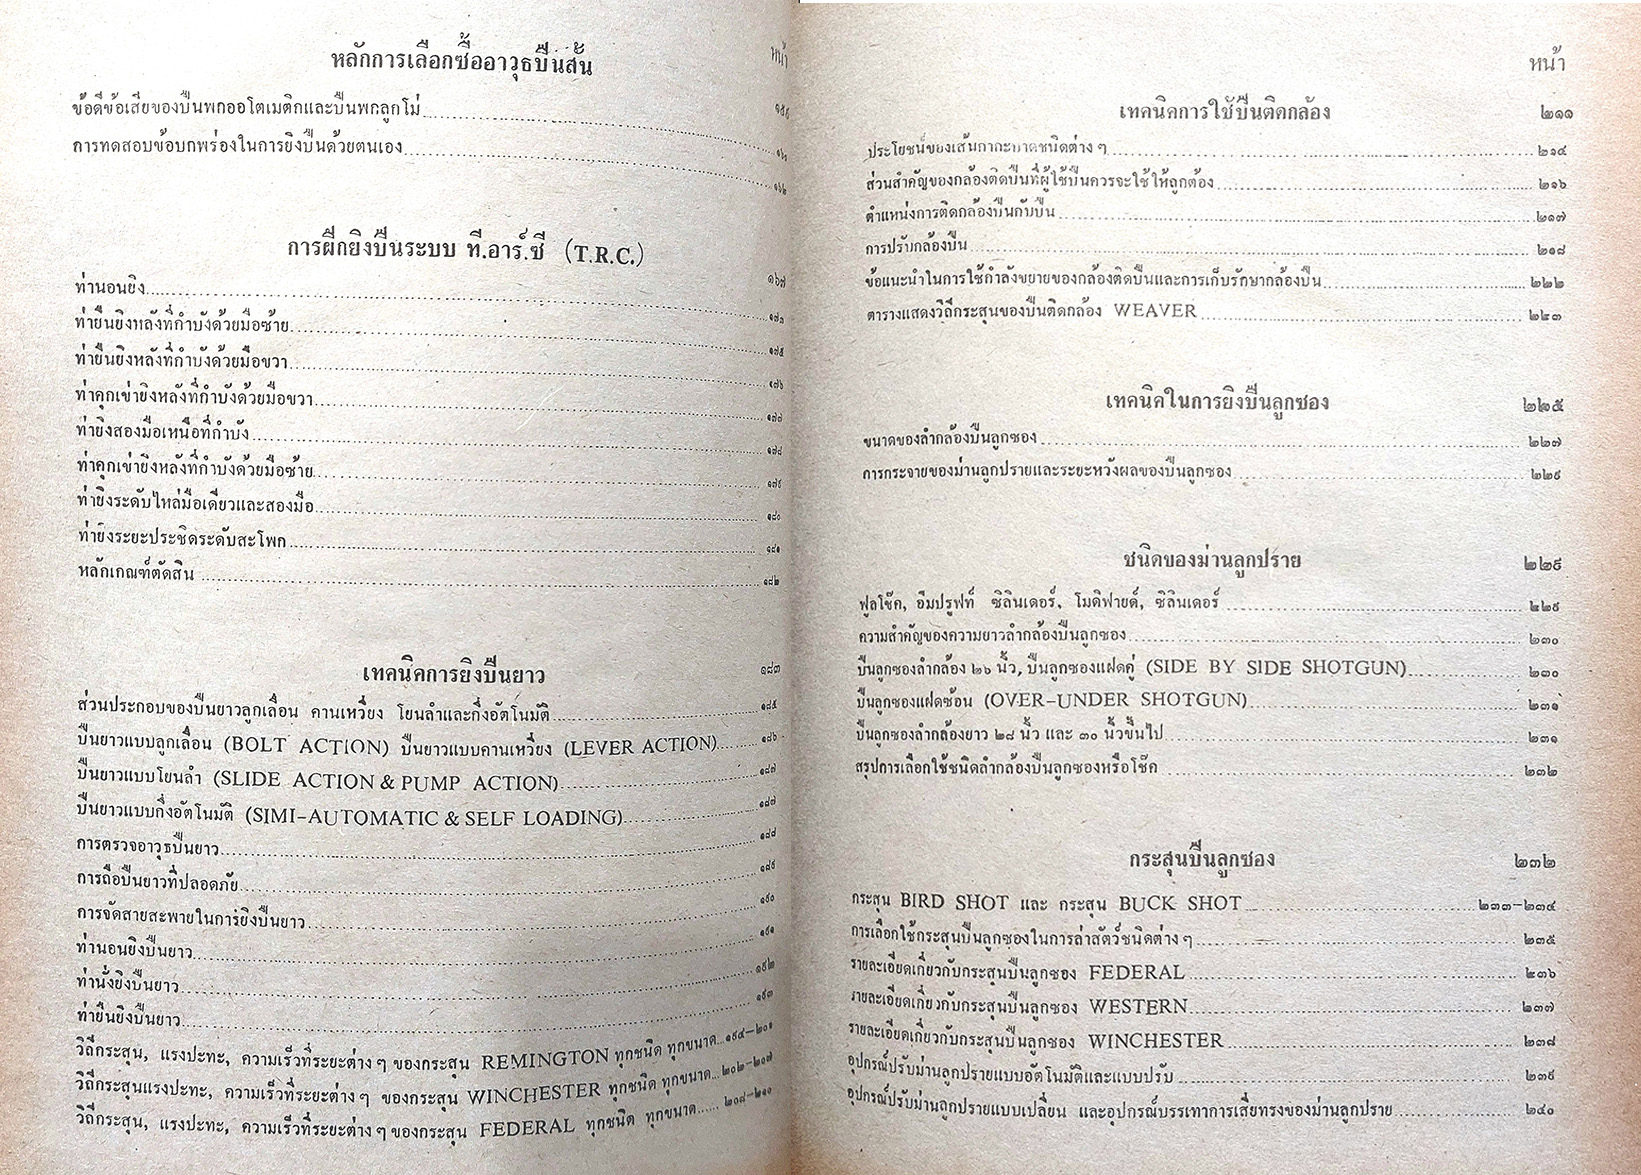 หน้า
หลักการเลือกซื้ออาวุธปืนสั้น
ข้อดีข้อเสียของปืนพกออโตเมติกและปืนพกลูกโม่
การทดสอบข้อบกพร่องในการยิงปืนด้วยตนเอง ๑๖๒
การฝึกยิงปืนระบบ ที.อาร์.ซี (T.R.C.) ๑๖๗
ท่านอนยิง ๑๗๓
ท่ายืนยิงหลังที่กำบังด้วยมือซ้าย ๑๗๕
ท่ายืนยิงหลังที่กำบังด้วยมือขวา ๑๗๖
ท่าคุกเข่ายิงหลังที่กำบังด้วยมือขวา ๑๗๗
ท่ายิงสองมือเหนือที่กำบัง ๑๗๘
ท่าคุกเข่ายิงหลังที่กำบังด้วยมือซ้าย ๑๗๙
ท่ายิงระดับไหล่มือเดียวและสองมือ ๑๘๐
ท่ายิงระยะประชิดระดับสะโพก ๑๘๑
หลักเกณฑ์ตัดสิน ๑๘๒
เทคนิคการยิงปืนยาว ๑๘๓
ส่วนประกอบของปืนยาวลูกเลื่อน คานเหวี่ยง โยนลำและกึ่งอัตโนมัติ ๑๘๕
ปืนยาวแบบลูกเลื่อน (BOLT ACTION) ปืนยาวแบบคานเหวี่ยง (LEVER ACTION) ๑๘๖
ปืนยาวแบบโยนลำ (SLIDE ACTION & PUMP ACTION) ๑๘๗
ปืนยาวแบบกึ่งอัตโนมัติ (SIMI-AUTOMATIC & SELF LOADING) ๑๘๗
การตรวจอาวุธปืนยาว ๑๘๘
การถือปืนยาวที่ปลอดภัย ๑๘๙
การจัดสายสะพายในการยิงปืนยาว ๑๙๐
ท่านอนยิงปืนยาว ๑๙๑
ท่านั่งยิงปืนยาว ๑๙๒
ท่ายืนยิงปืนยาว ๑๙๓
วิถีกระสุน, แรงปะทะ, ความเร็วที่ระยะต่าง ๆ ของกระสุน REMINGTON ทุกชนิด ทุกขนาด ๑๙๔-๒๐๑
วิถีกระสุนแรงปะทะ, ความเร็วที่ระยะต่าง ๆ ของกระสุน WINCHESTER ทุกชนิด ทุกขนาด ๒๐๒-๒๑๗
วิถีกระสุน, แรงปะทะ, ความเร็วที่ระยะต่าง ๆ ของกระสุน FEDERAL ทุกชนิด ทุกขนาด ๒๐๘-๒๑๐
หน้า
เทคนิคการใช้ปืนติดกล้อง ๒๑๑
ประโยชน์ของเส้นกากะบาดชนิดต่าง ๆ ๒๑๔
ส่วนสำคัญของกล้องติดปืนที่ผู้ใช้ปืนควรจะใช้ให้ถูกต้อง ๒๑๖
ตำแหน่งการติดกล้องปืนกับปืน ๒๑๗
การปรับกล้องปืน ๒๑๘
ข้อแนะนำในการใช้กำลังขยายของกล้องติดปืนและการเก็บรักษากล้องปืน ๒๒๒
ตารางแสดงวิถีกระสุนของปืนติดกล้อง WEAVER ๒๒๓
เทคนิคในการยิงปืนลูกซอง ๒๒๕
ขนาดของลำกล้องปืนลูกซอง ๒๒๗
การกระจายของม่านลูกปรายและระยะหวังผลของปืนลูกซอง ๒๒๙
ชนิดของม่านลูกปราย ๒๒๙
ฟูลโช๊ค, อิมปรูฟท์ ซิลินเดอร์, โมดิฟายด์, ซิลินเดอร์ ๒๒๙
ความสำคัญของความยาวลำกล้องปืนลูกซอง ๒๓๐
ปืนลูกซองลำกล้อง ๒๖ นิ้ว, ปืนลูกซองแฝดคู่ (SIDE BY SIDE SHOTGUN) ๒๓๐
ปืนลูกซองแฝดซ้อน (OVER-UNDER SHOTGUN) ๒๓๑
ปืนลูกซองลำกล้องยาว ๒๘ นิ้ว และ ๓๐ นิ้วขึ้นไป ๒๓๑
สรุปการเลือกใช้ชนิดลำกล้องปืนลูกซองหรือโช๊ค ๒๓๒
กระสุนปืนลูกซอง ๒๓๒
กระสุน BIRD SHOT และ กระสุน BUCK SHOT ๒๓๓-๒๓๔
การเลือกใช้กระสุนปืนลูกซองในการล่าสัตว์ชนิดต่าง ๆ ๒๓๕
รายละเอียดเกี่ยวกับกระสุนปืนลูกซอง FEDERAL ๒๓๖
รายละเอียดเกี่ยวกับกระสุนปืนลูกซอง WESTERN ๒๓๗
รายละเอียดเกี่ยวกับกระสุนปืนลูกซอง WINCHESTER ๒๓๘
อุปกรณ์ปรับม่านลูกปรายแบบอัตโนมัติและแบบปรับ ๒๓๙
อุปกรณ์ปรับม่านลูกปรายแบบเปลี่ยน และอุปกรณ์บรรเทาการเสียทรงของม่านลูกปราย ๒๔๐